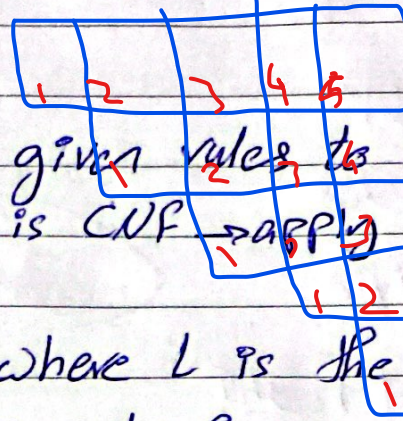 1 2 3 4 5
given rules to
1 2 3 4
is CNF → apply
1 2 3
1 2
where L is the
1